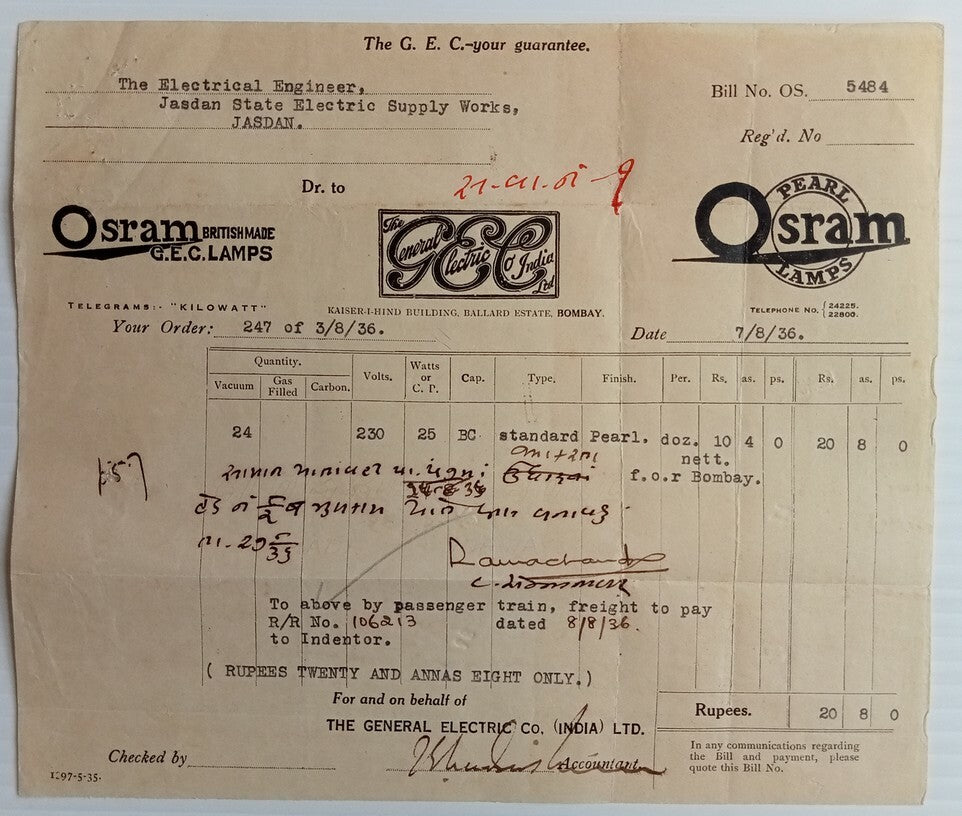 The G. E. C.-your guarantee.
The Electrical Engineer,
Jasdan State Electric Supply Works,
JASDAN.
Bill No. OS. 5484
Reg'd. No
Dr. to
Osram BRITISH MADE
G.E.C. LAMPS
The General Electric Co India Ltd
PEARL
Osram
LAMPS
TELEGRAMS:- "KILOWATT"
KAISER-I-HIND BUILDING, BALLARD ESTATE, BOMBAY.
TELEPHONE NO. { 24225.
22800.
Your Order: 247 of 3/8/36.
Date 7/8/36.
Quantity.
Vacuum Gas Filled Carbon. Volts. Watts or C. P. Cap. Type. Finish. Per. Rs. as. ps. Rs. as. ps.
24 230 25 BC. standard Pearl. doz. 10 4 0 20 8 0
nett.
f.o.r Bombay.
To above by passenger train, freight to pay
R/R No. 106213 dated 8/8/36.
to Indentor.
( RUPEES TWENTY AND ANNAS EIGHT ONLY.)
For and on behalf of
THE GENERAL ELECTRIC Co. (INDIA) LTD.
Rupees. 20 8 0
Checked by
Accountant.
In any communications regarding
the Bill and payment, please
quote this Bill No.
1297-5-35.